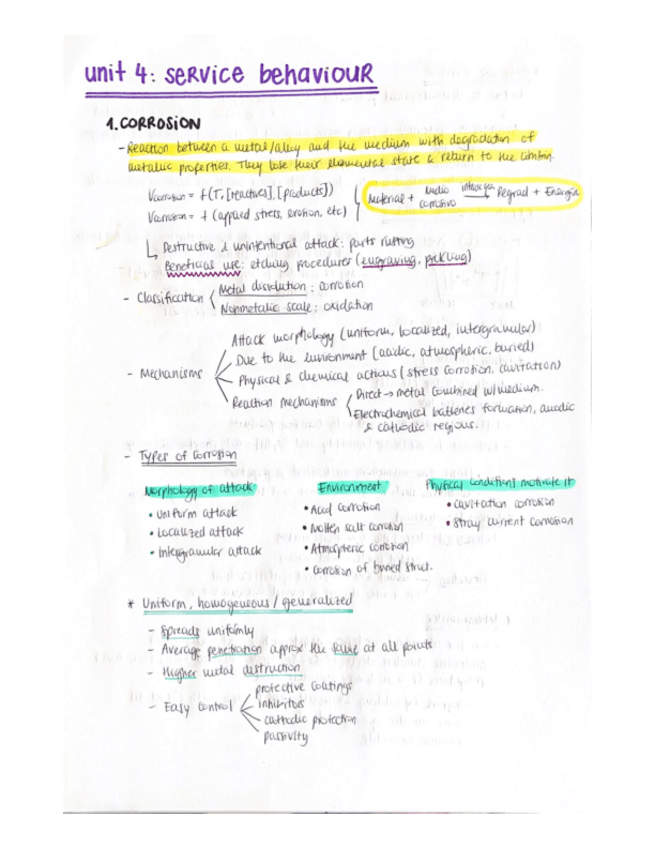 unit 4: service behaviour
1. CORROSION
- Reaction between a metal/alloy and the medium with degradation of
metallic properties. They lose their elemental state & return to the
Vcorrosion = f(T, [reactives], [products])
Vcorrosion = f (applied stress, erosion, etc)
Material + Medio corrosivo → Degrad + Energía
↳ Destructive & unintentional attack: parts rusting
Beneficial use: etching procedures (engraving, pickling)
- Classification < Metal dissolution: corrosion
Nonmetalic scale: oxidation
- Mechanisms
Attack morphology (uniform, localized, intergranular)
Due to the environment (acidic, atmospheric, buried)
Physical & chemical actions (stress corrosion, cavitation)
Reaction mechanisms < Direct → metal combined w/medium.
Electrochemical batteries formation, anodic
& cathodic regions.
- Types of corrosion
Morphology of attack
• Uniform attack
• Localized attack
• Intergranular attack
Environment
• Acid corrosion
• Molten salt corrosion
• Atmospheric corrosion
• Corrosion of buried struct.
Physical conditions motivate it
• Cavitation corrosion
• Stray current corrosion
* Uniform, homogeneous / generalized
- Spreads uniformly
- Average penetration approx the same at all points
- Higher metal destruction
- Easy control
protective coatings
inhibitors
cathodic protection
passivity